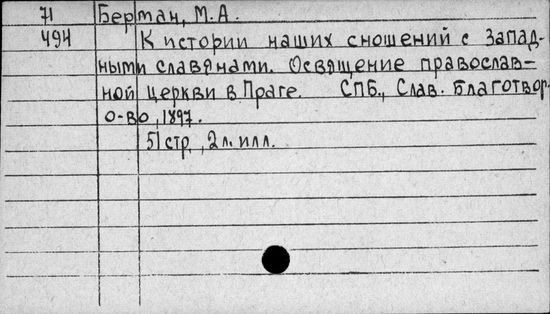 71 Берман, М.А.
494 К истории наших сношений с запад-
ными славянами. Освящение православ-
ной церкви в Праге. СПБ., Слав. благотвор.
о-во, 1897.
51 стр., 2 л. илл.